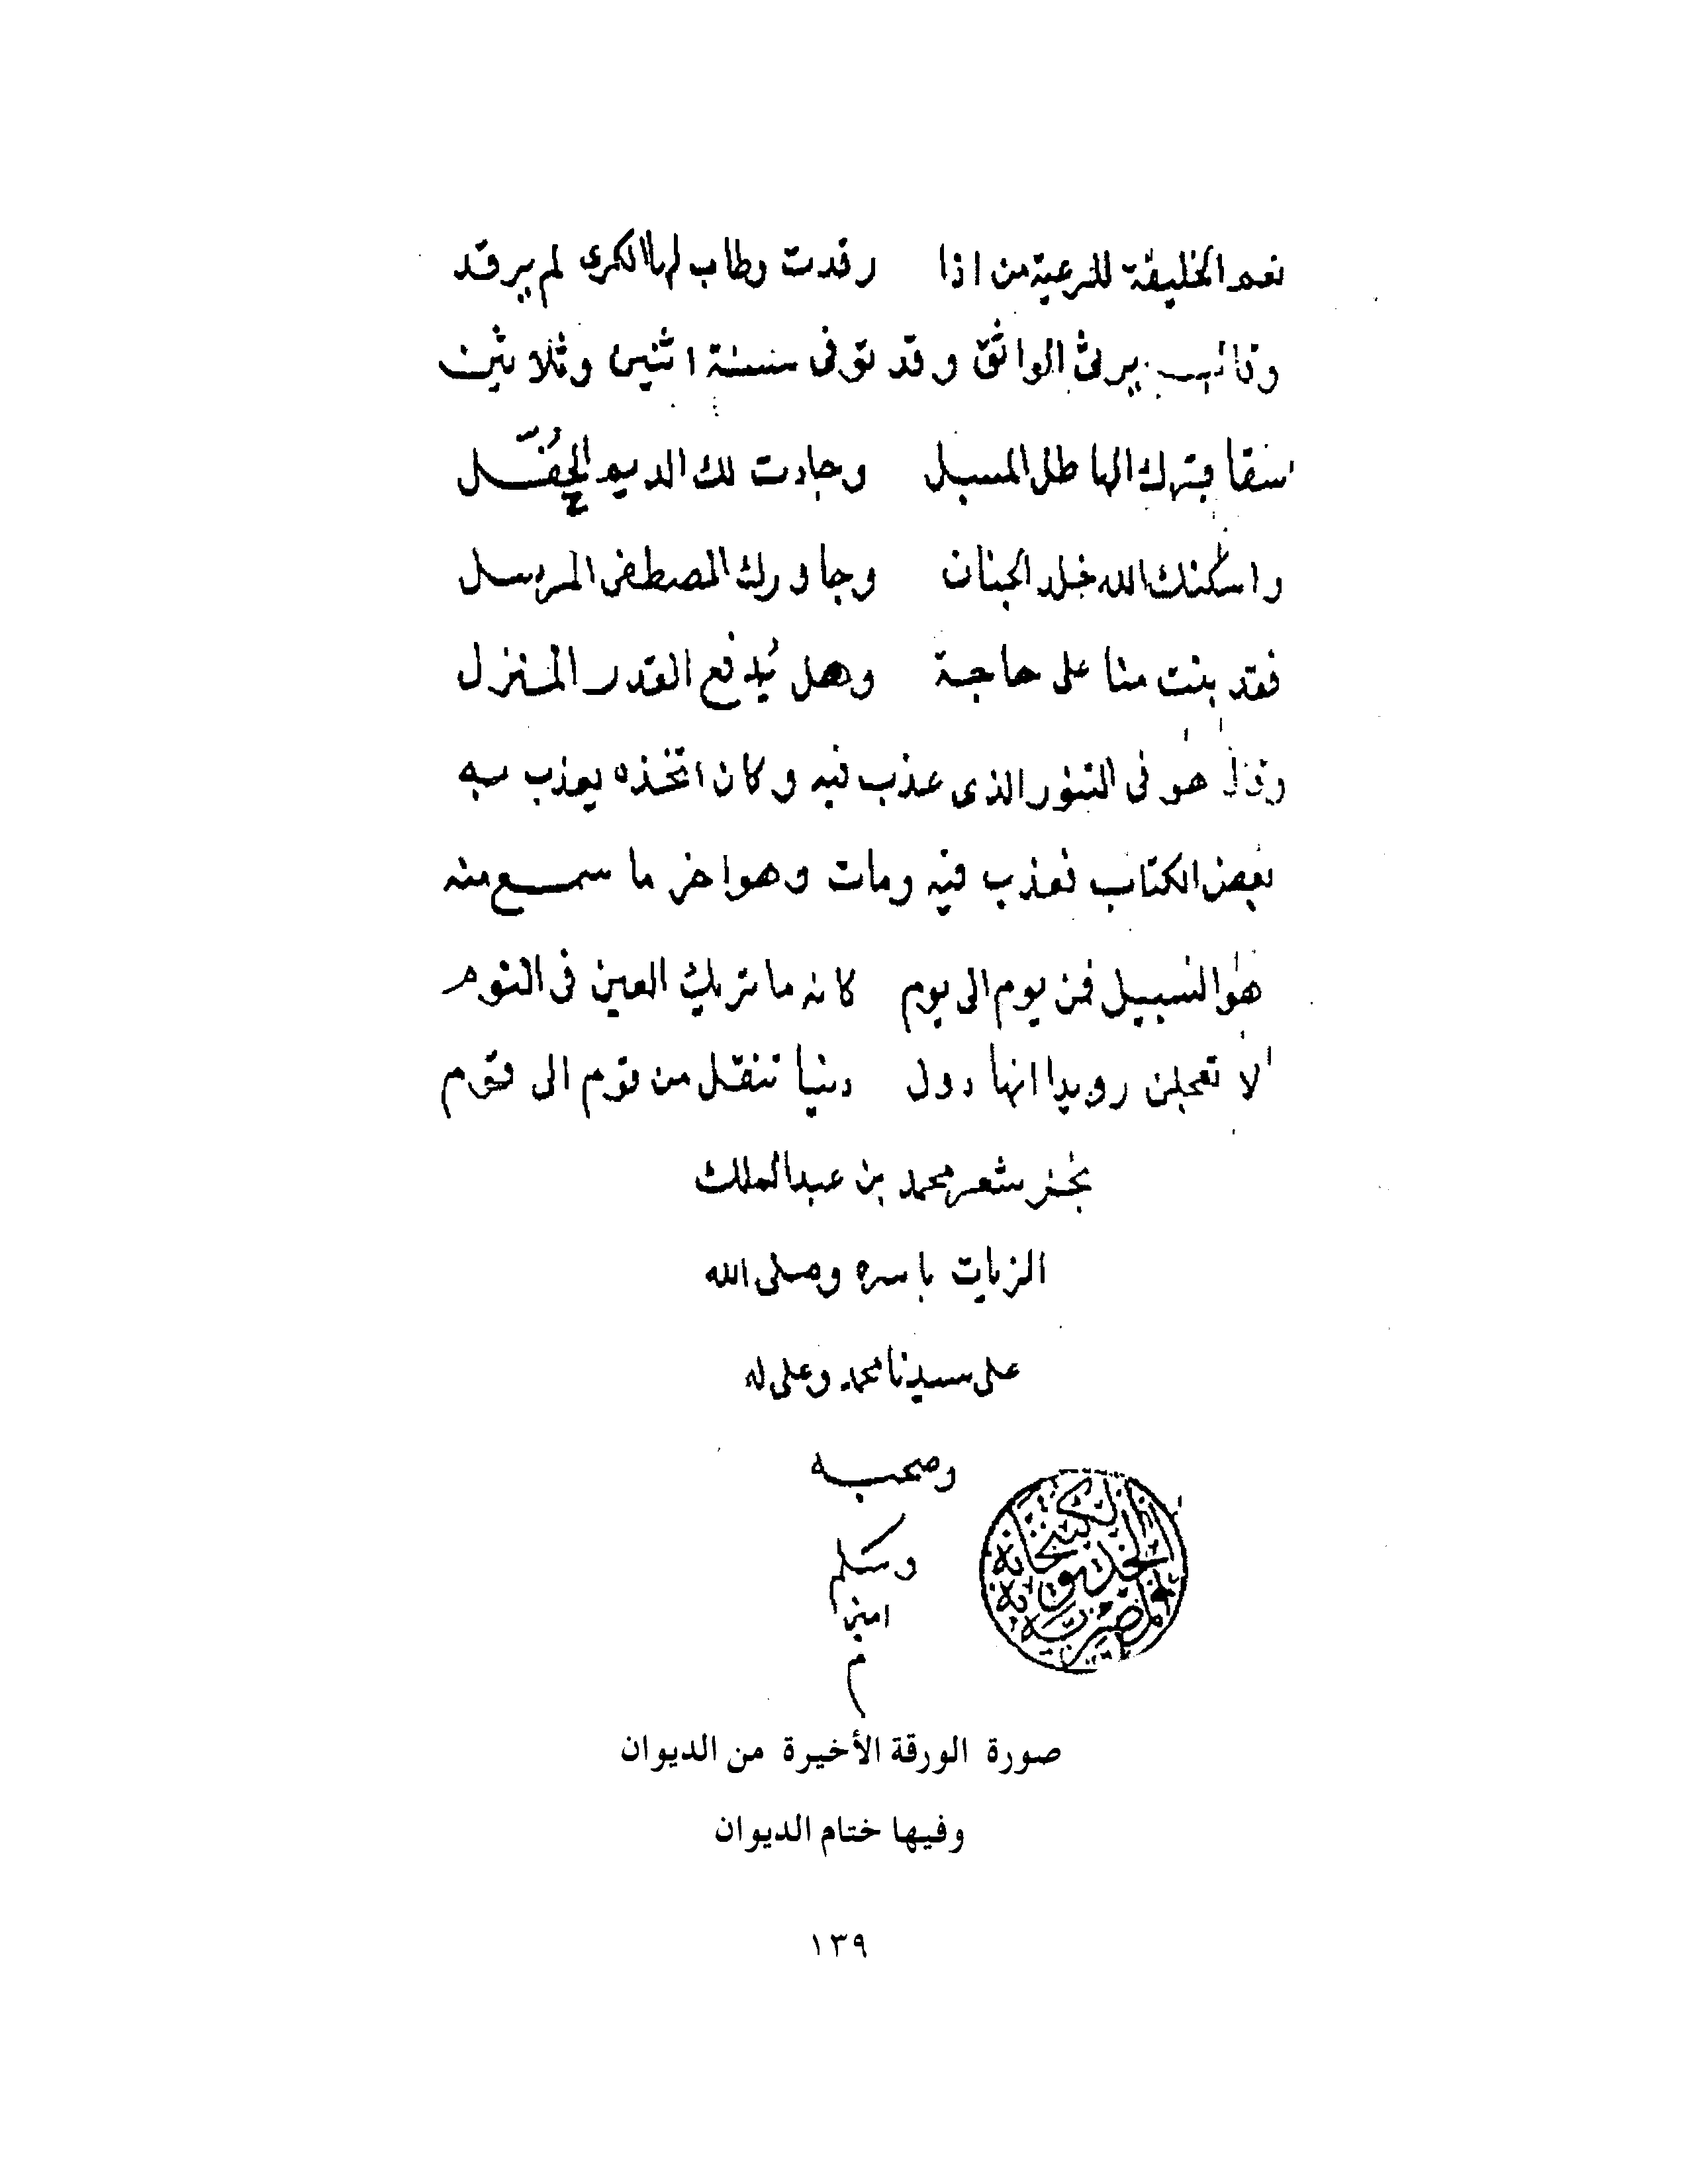 نعم الخليفة للرعية من اذا رقدت وطاب لها الكرى لم يرقد
وقال يرثى الواثق وقد توفى سنة اثنين وثلاثين
سقا قبرك الهاطل المسبل وجادت لك الديم الحُفَّل
واسكنك الله خلد الجنان وجاورك المصطفى المرسل
فقد بنت منا على حاجة وهل يُدفع القدر المنزل
وقال هو فى التنور الذى عذب فيه وكان اتخذه يعذب به
بعض الكتاب فعذب فيه ومات وهو اخر ما سمع منه
هو السبيل فمن يوم الى يوم كانه ما تريك العين فى النوم
لا تعجلن رويدا انها دول دنيا تنقل من قوم الى قوم
نجز شعر محمد بن عبد الملك
الزيات باسره وصلى الله
على سيدنا محمد وعلى له
وصحبه
وسلم
امين
م
الكتبخانة
الخديوية
المصرية
صورة الورقة الأخيرة من الديوان
وفيها ختام الديوان
١٣٩